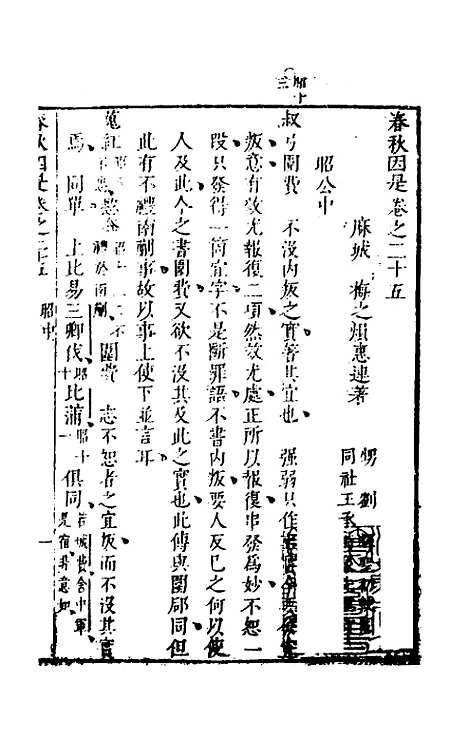 昭十三
春秋因是卷之二十五
麻城 梅之熉惠連著
甥劉
同社王承
昭公中
叔弓圍費 不沒內叛之實著其宜也 强弱只作
叛意有效尤報復二項然效尤處正所以報復串發爲妙不恕一
段只發得一箇宜字不是斷罪語不書內叛要人反巳之何以使
人及此今之書圍費又欲不沒其及此之實也此傳與圍郈同但
此有不禮南蒯事故以事上使下並言耳
蒐紅 不禮於南蒯 圍費 志不恕者之宜叛而不沒其實
焉 同單 上比易三卿伐昭十比蒲昭十一俱同 若城費舍中軍
是宿 意如
春秋因是卷之二十五 昭中 一